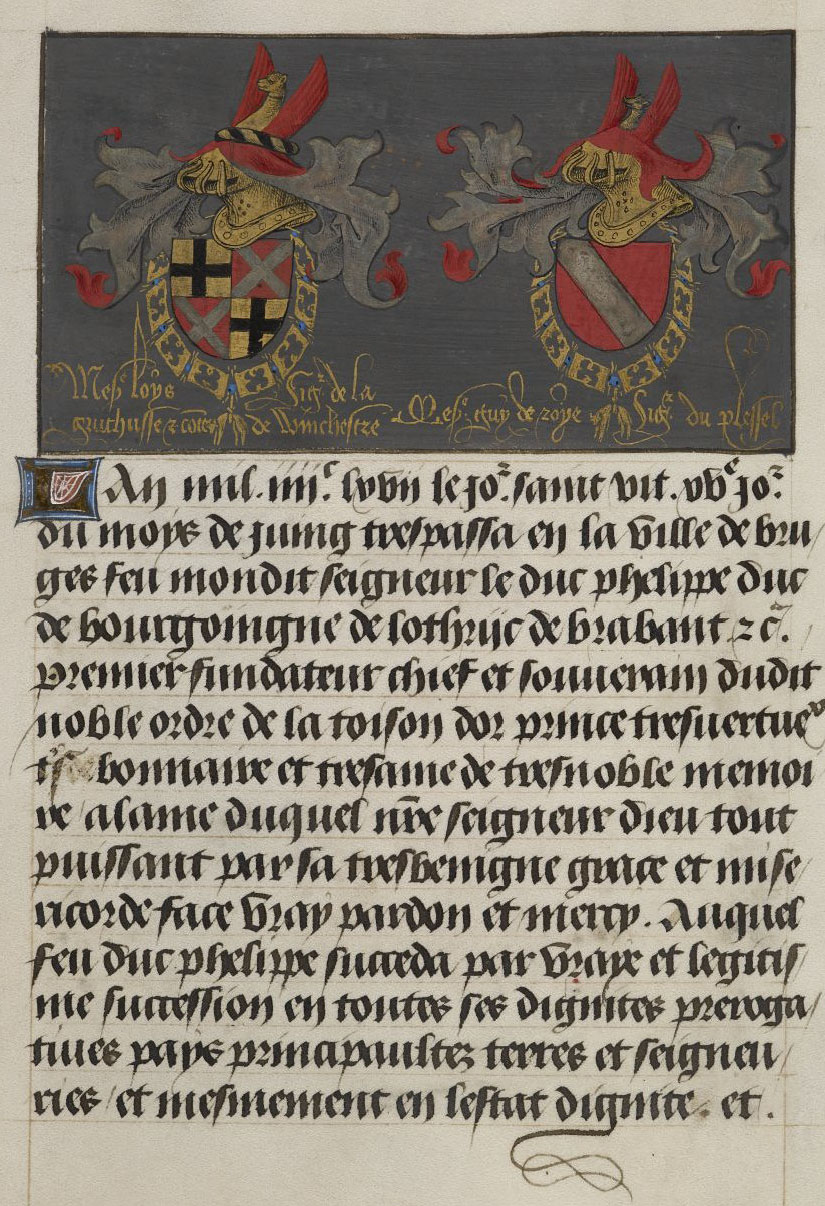 Mess.e loys Sig.r de la
gruthusse z conte de Wincestre
Mess.e guy de roye Sig.r du plessel
L An mil. iiii.c lxvii le jo.r saint vit. xv.e jo.r
du moys de juing trespassa en la ville de bru/
ges feu mondit seigneur le duc phelippe duc
de bourgoingne de lothrijc de brabant z c.a
premier fundateur chief et souverain dudit
noble ordre de la toison dor prince tresvertueux
bonnaire et tresame de tresnoble memoi
re / alame duquel nr̃e seigneur dieu tout
puissant par sa tresbenigne grace et mise/
ricorde face vray pardon et mercy. Auquel
feu duc phelippe succeda par vraye et legitis/
me succession en toutes ses dignites preroga/
tives pays principaultez terres et seigneu/
ries / et mesmement en lestat dignite. et.